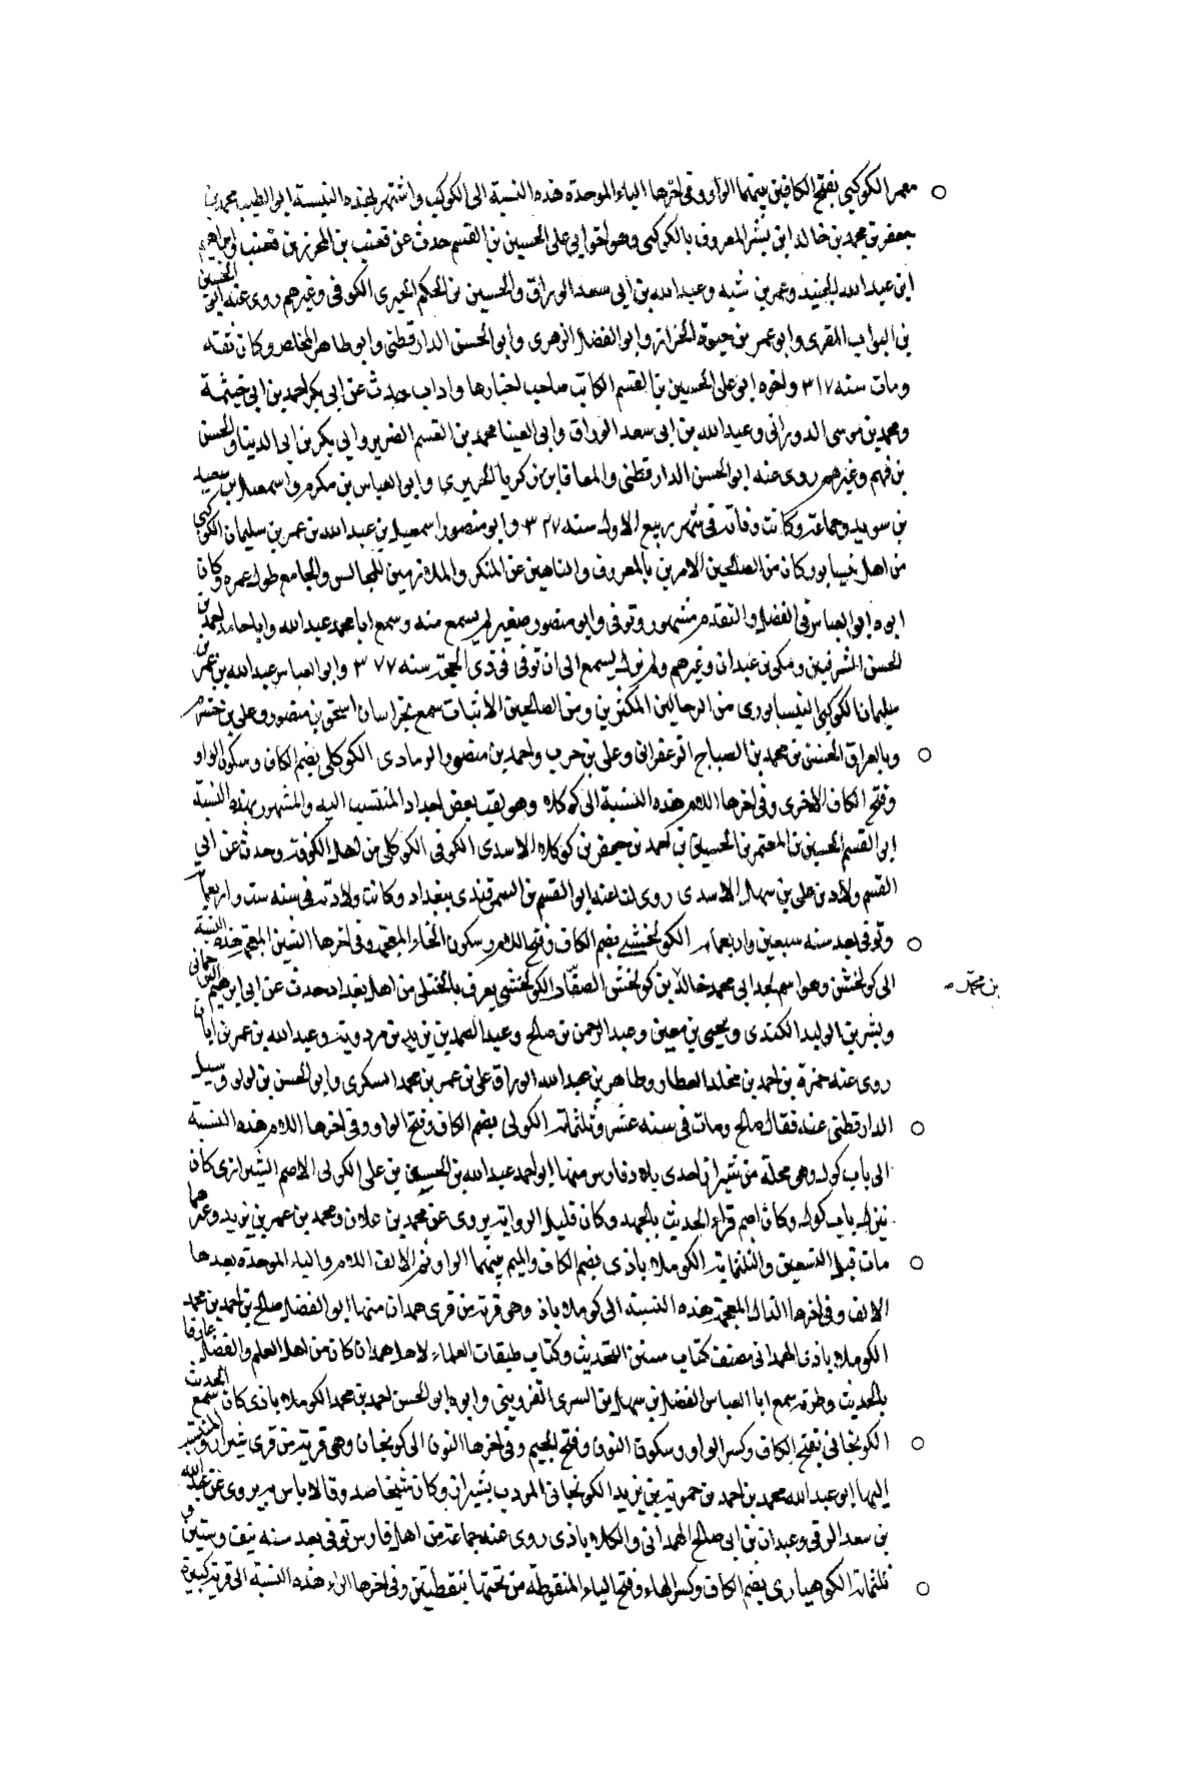 معمر الكوكبي بفتح الكافين بينهما الواو وفي اخرها الباء الموحدة هذه النسبة الى الكوكب واشتهر بهذه النسبة ابو الطيب محمد بن
جعفر بن محمد بن خالد ابن بشر المعروف بالكوكبي وهو اخو ابي علي الحسين بن القسم حدث عن قعنب بن المحرز بن قعنب وابراهيم
ابن عبد الله الجنيد وعمر بن شبه وعبد الله بن ابي سعد الوراق والحسين بن الحكم الحبري الكوفي وغيرهم روى عنه ابو الحسين
بن البواب المقرى وابو عمر بن حيوة الخزاز وابو الفضل الزهري وابو الحسن الدارقطني وابو طاهر المخلص وكان ثقه
ومات سنه ٣١٧ واخوه ابو علي الحسين بن القسم الكاتب صاحب اخبارها واداب حدث عن ابي بكر احمد بن ابي خيثمة
ومحمد بن موسى الدورانى وعبد الله بن ابي سعد الوراق وابي العينا محمد بن القسم الضرير وابي بكر بن ابى الدنيا والحسن
بن فهم وغيرهم روى عنه ابو الحسن الدارقطني والمعافا بن زكريا الجريري وابو العباس بن مكرم واسمعيل بن سعيد
بن سويد وجماعة وكانت وفاته في شهر ربيع الاول سنه ٣٢٧ وابو منصور اسمعيل بن عبد الله بن عمر بن سليمان الكوكبي
من اهل نيسابور وكان من الصالحين الامرين بالمعروف والناهين عن المنكر والملازمين للمجالس والجامع طول عمره وكان
ابوه ابو العباس في الفضل والتقدم مشهور وتوفى وابو منصور صغير لم يسمع منه وسمع ابا محمد عبد الله وابا حامد احمد بن
الحسن الشرقيين ومكي بن عبدان وغيرهم ولم نزل يسمع الى ان توفى في ذى الحجة سنه ٣٧٧ وابو العباس عبد الله بن عمر بن
سليمان الكوكبي النيسابورى من الرحالين المكثرين ومن الصالحين الاثبات سمع بخراسان اسحق بن منصور وعلي بن خشرم
وبالعراق الحسن بن محمد بن الصباح الزعفراني وعلي بن حرب واحمد بن منصور الرمادى الكوكلي بضم الكاف وسكون الواو
وفتح الكاف الاخرى وفي اخرها اللام هذه النسبة الى كوكله وهو لقب بعض اجداد المنتسب اليه والمشهور بهذه النسبة
ابو القسم الحسين بن المعتمر بن الحسين بن احمد بن جعفر بن كوكله الاسدى الكوفى الكوكلي من اهل الكوفة وحدث عن ابي
القسم ولاد بن علي بن سهل الاسدى روى لنا عنه ابو القسم بن السمرقندى ببغداد وكانت ولادته في سنه ست واربعمائة
وتوفى بعد سنه سبعين واربعمائة الكولخشي بضم الكاف وفتح اللام وسكون الخاء المعجمة وفي اخرها الشين المعجمة هذه النسبة
الى كولخش وهو اسم لجد ابي محمد خالد بن كولخش الصفار الكولخشي يعرف بالختلي من اهل بغداد حدث عن ابى ابرهيم الترجمانى
بن محمد صح
وبشر بن الوليد الكندى ويحيى بن معين وعبد الرحمن بن صالح وعبد الصمد بن يزيد بن مردويه وعبد الله بن عمر بن ابان
روى عنه حمزة بن احمد بن مخلد العطار وطاهر بن عبد الله الوراق علي بن عمر بن محمد السكرى وابو الحسن بن لولو وسيل
الدارقطني عنه فقال صالح ومات في سنه عشر وثلثمائة الكولى بضم الكاف وفتح الواو وفي اخرها اللام هذه النسبة
الى باب كول وهي محلة من شيراز احدى بلاد فارس منها ابو احمد عبد الله بن الحسين بن علي الكولى الاصم الشيرازى كان
ينزل باب كول وكان اصم قراء الحديث بالجهد وكان قليل الرواية يروى عن محمد بن علان ومحمد بن عمر بن يزيد وغيرهما
مات قبل التسعين والثلثماية الكوملاباذى بضم الكاف والميم بينهما الواو ثم الالف اللام والباء الموحدة بعدها
الالف وفي اخرها الذال المعجمة هذه النسبة الى كوملاباذ وهي قرية من قرى همدان منها ابو الفضل صالح بن احمد بن محمد
الكوملاباذى الهمدانى مصنف كتاب سنن التحديث وكتاب طبقات العلماء لاهل همدان كان من اهل العلم والفضل عارفا
بالحديث وطرقه سمع ابا العباس الفضل بن سهل بن السرى القزوينى وابوه ابو الحسن احمد بن محمد الكوملاباذى كان سمع الحديث
الكونجانى بفتح الكاف وكسر الواو وسكون النون وفتح الجيم وفي اخرها النون الى كونجان وهي قرية من قرى شيراز والمنتسب
اليها ابو عبد الله محمد بن احمد بن حمويه بن يزيد الكونجانى المودب بشيراز وكان شيخا صدوقا لا باس به يروى عن عبد الله
بن سعد الرقى وعبدان بن ابى صالح الهمدانى والكلاباذى روى عنه جماعة من اهل فارس توفى بعد سنه نيف وستين و
ثلثمائة الكوهيارى بضم الكاف وكسر الهاء وفتح الياء المنقوطة من تحتها بنقطتين وفى اخرها الراء هذه النسبة الى قرية كبيرة